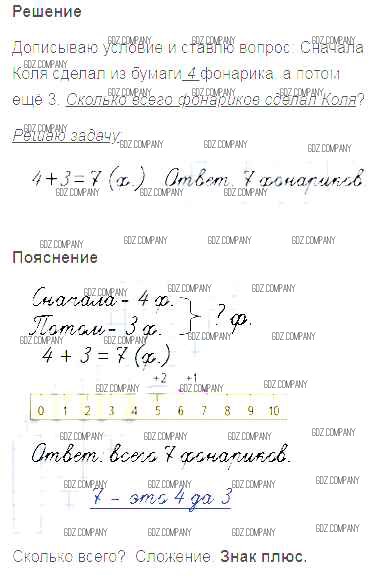 Решение
Дописываю условие и ставлю вопрос. Сначала
Коля сделал из бумаги 4 фонарика, а потом
ещё 3. Сколько всего фонариков сделал Коля?
Решаю задачу.
4+3=7 (ф.) Ответ. 7 фонариков
Пояснение
Сначала - 4 ф.
Потом - 3 ф.
? ф.
4 + 3 = 7 (ф.)
+2 +1
0 1 2 3 4 5 6 7 8 9 10
Ответ: всего 7 фонариков.
7 - это 4 да 3
Сколько всего? Сложение. Знак плюс.
GDZ.COMPANY